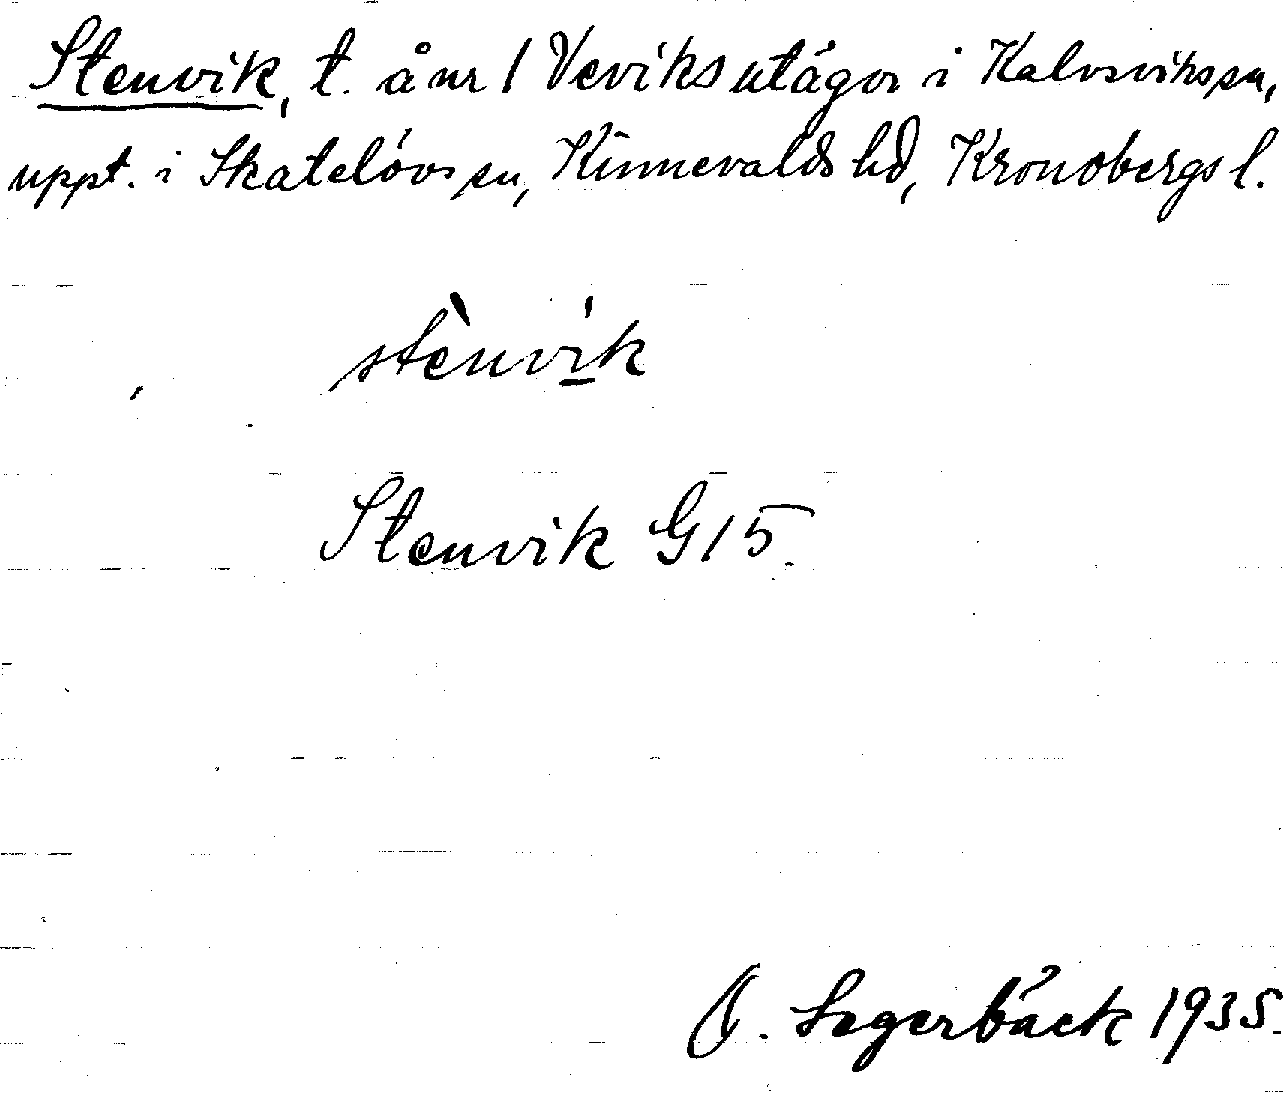 Stenvik, t. å nr 1 Veviks utägor i Kalvsviks sn,
uppt. i Skatelövs sn, Kinnevalds hd, Kronobergs l.
stènvi̲k
Stenvik G15.
O. Lagerbäck 1935.